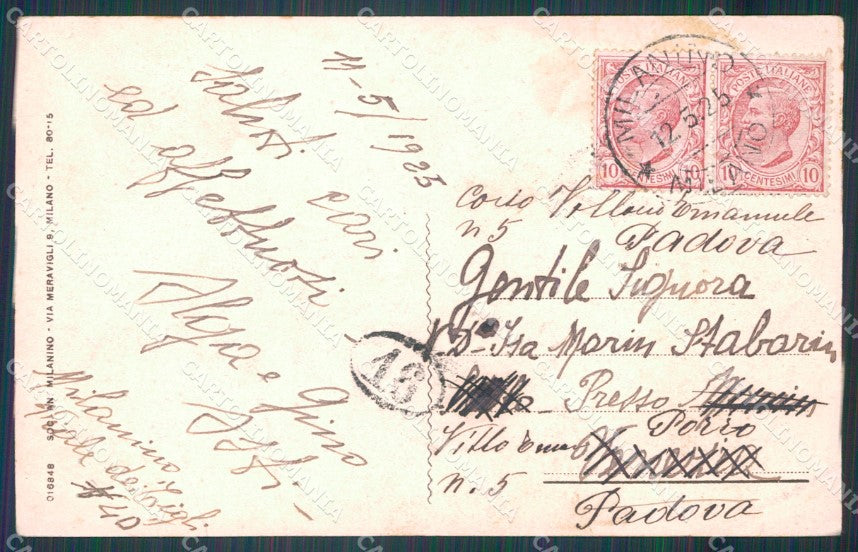 11-5/1925
Saluti cari
ed affettuosi
Alga e Gino
Milanino
Viale dei Gigli
40
016848 SOC. AN. MILANINO - VIA MERAVIGLI 9, MILANO - TEL. 80-15
MILANINO
12.5.25
MILANO
POSTE ITALIANE
10 CENTESIMI 10
POSTE ITALIANE
10 CENTESIMI 10
16
Corso Vittorio Emanuele
n 5 Padova
Gentile Signora
Isa Marin Stabarin
Presso
Porro
Vitto Eman
n. 5
Padova
CARTOLINOMANIA